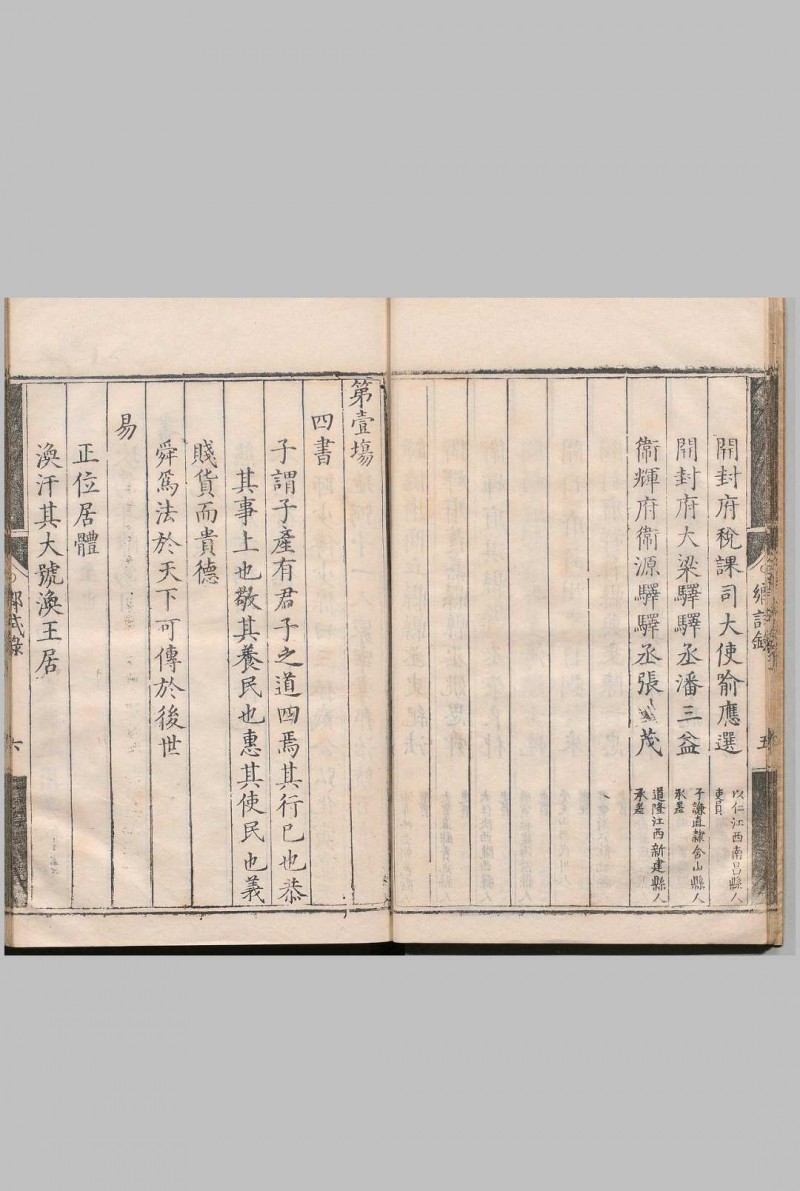 鄉試錄
五
開封府稅課司大使喻應選
以仁江西南昌縣人
吏員
開封府大梁驛驛丞潘三益
子謙直隸含山縣人
承差
衛輝府衛源驛驛丞張茂
道隆江西新建縣人
承差
第壹場
四書
子謂子產有君子之道四焉其行巳也恭
其事上也敬其養民也惠其使民也義
賤貨而貴德
舜爲法於天下可傳於後世
易
正位居體
渙汗其大號渙王居
鄉試錄
六